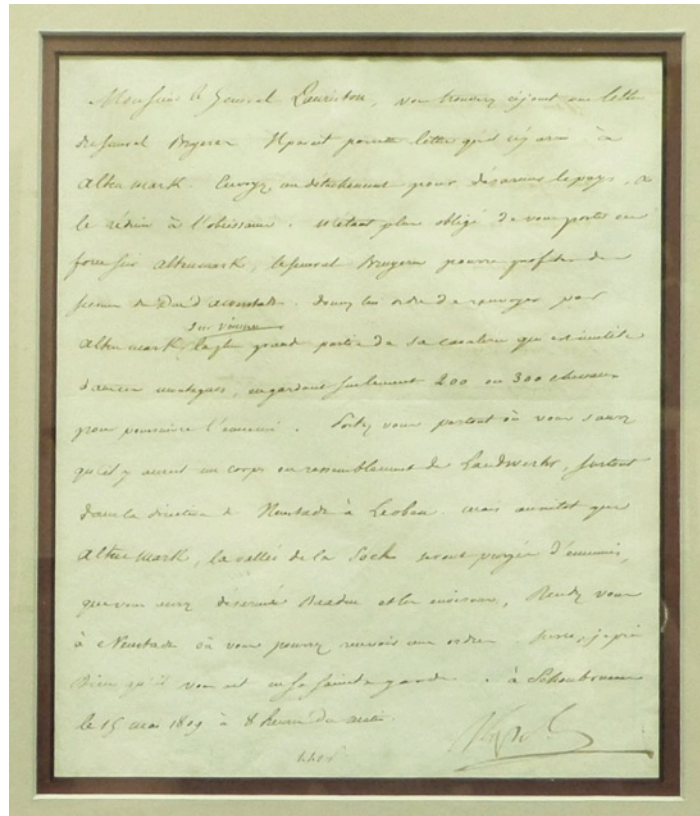 Monsieur le Général Lauriston, vous trouverez cijoint une lettre
du Général Bruyeres. Il parait par cette lettre qu'il à
Altenmark. Envoyez un détachement pour désarmer le pays, et
le réduire à l'obéissance. N'étant plus obligé de vous porter en
force sur Altenmark, le Général Bruyeres pourra
donnez lui ordre de renvoyer par
sur vienne
Altenmark la plus grande partie de sa cavalerie qui est inutile
dans ces montagnes, en gardant seulement 200 ou 300 chevaux
pour poursuivre l'ennemi. Portez vous partout où vous saurez
qu'il y aurait un corps ou rassemblement de Landwerhr, surtout
dans la direction de Neustadt à Leoben. mais aussitot que
Altenmark, la vallée de la seront purgés d'ennemis,
que vous aurez désarmé Baaden et les environs, Rendez vous
à Neustadt où vous pourrez recevoir un ordre. Surce, je prie
Dieu qu'il vous ait en sa sainte garde. à Schoenbrunn
le 15 mai 1809 à 8 heures du matin.